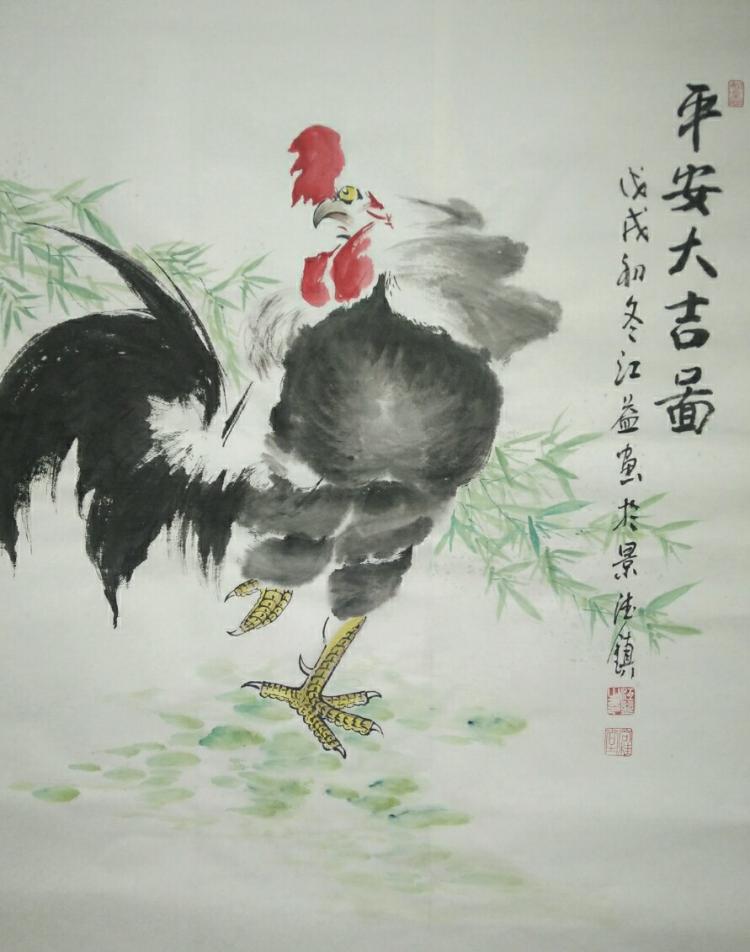 平安大吉图
戊戌初冬江益画于景德镇